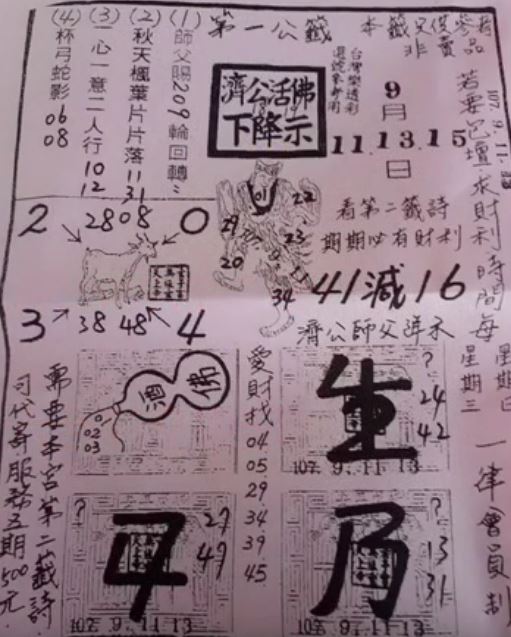 本籤只供參考
非賣品
第一公籤
(1)師父賜209輪回轉"
(2)秋天楓葉片片落11 31
(3)一心一意二人行10 12
(4)杯弓蛇影06 08
濟公活佛
下降示
9月
11.13.15
日
107.9.11.13
若要包壇求財利時間每
星期三
一律會員制
看第二籤詩
期期必有財利
41減16
濟公師父降示
01
22
29
23
20
34
2
2808
0
3
38
48
4
佛
酒
02
03
愛財找04 05 29 34 39 45
生
?
24
42
107. 9. 11 13
?
27
47
107. 9. 11 13
?
13
31
107. 9. 11 13
需要本宮第二籤詩
可代寄服務五期500元